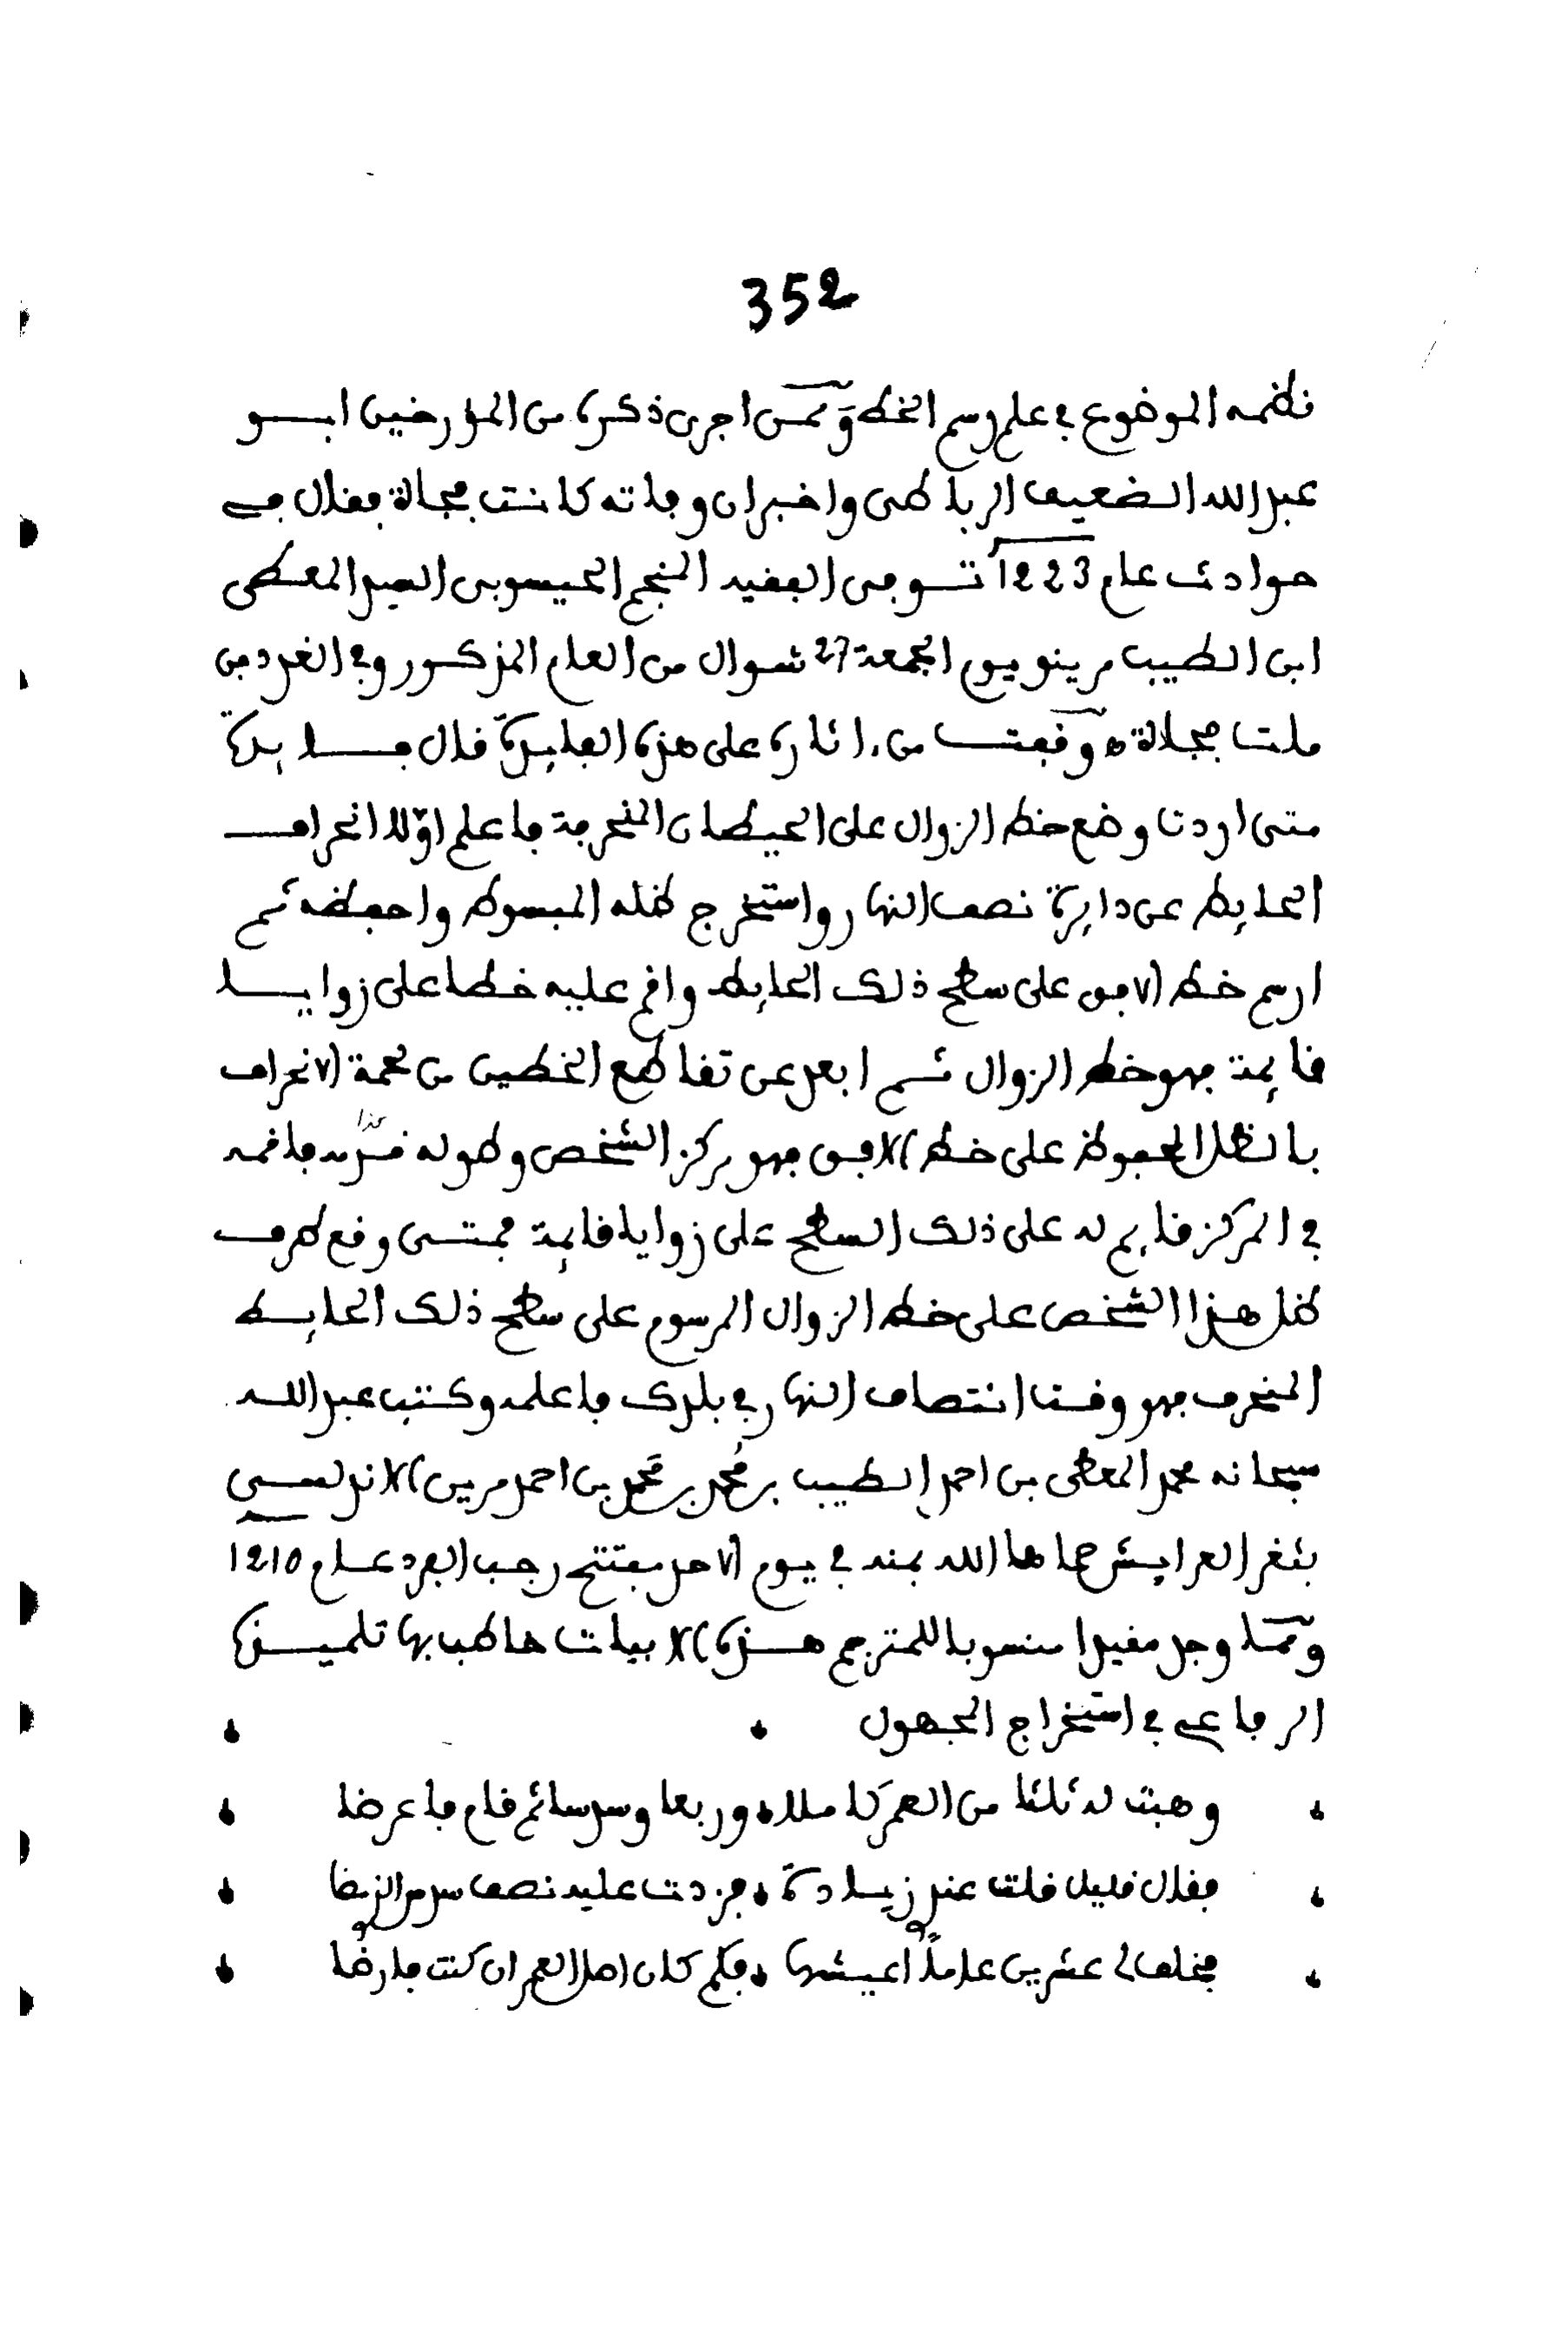 352
نظمه الموضوع في علم رسم الخط وممن اجرى ذكره من المؤرخين ابو
عبد الله الضعيف الرباطي واخبر ان وفاته كانت فجاة فقال في
حوادث عام 1223 توفي الفقيد المنجم الحيسوبي السيد المعطى
ابن الطيب مرينو يوم الجمعة 27 شوال من العام المذكور وفي الغد دفن
مات فجلاة ه وقفت من اثاره على هذه الفايدة قال فايدة
متى اردت وضع خط الزوال على الحيطان المنحرفة فاعلم اولا انحراف
الحايط عن دايرة نصف النهار واستخرج ظله المبسوط واحفظه ثم
ارسم خط الافق على سطح ذلك الحايط واقم عليه خطا على زوايا
قايمة فهو خط الزوال ثم ابعد عن تقاطع الخطين من جهة الانحراف
بالظل المحفوظ على خط الافق فهو مركز الشخص وطوله كذا فاقمه
في المركز قايم له على ذلك السطح على زوايا قايمة فمتى وقع طرف
ظل هذا الشخص على خط الزوال المرسوم على سطح ذلك الحايط
المنحرف فهو وقت انتصاف النهار في بلدك فاعلمه وكتب عبد الله
سبحانه محمد المعطى بن احمد الطيب بن محمد بن محمد بن احمد مرين الاندلسي
بثغر العرايش حماها الله بمنه في يوم الاحد مفتتح رجب الفرد عام 1210
ومما وجد مفيدا منسوبا للمترجم هذه الابيات خاطب بها تلميذه
الرفاعي في استخراج المجهول
وهبت له ثلثا من العمر كاملا ه وربعا وسدسا ثم قام فاعرضا
فقال قليل قلت عند زيادة ه فزدت عليه نصف سدس الذي مضا
فخلف لي عشرين عاما اعيشها ه فكم كان اصل العمر ان كنت فارضا